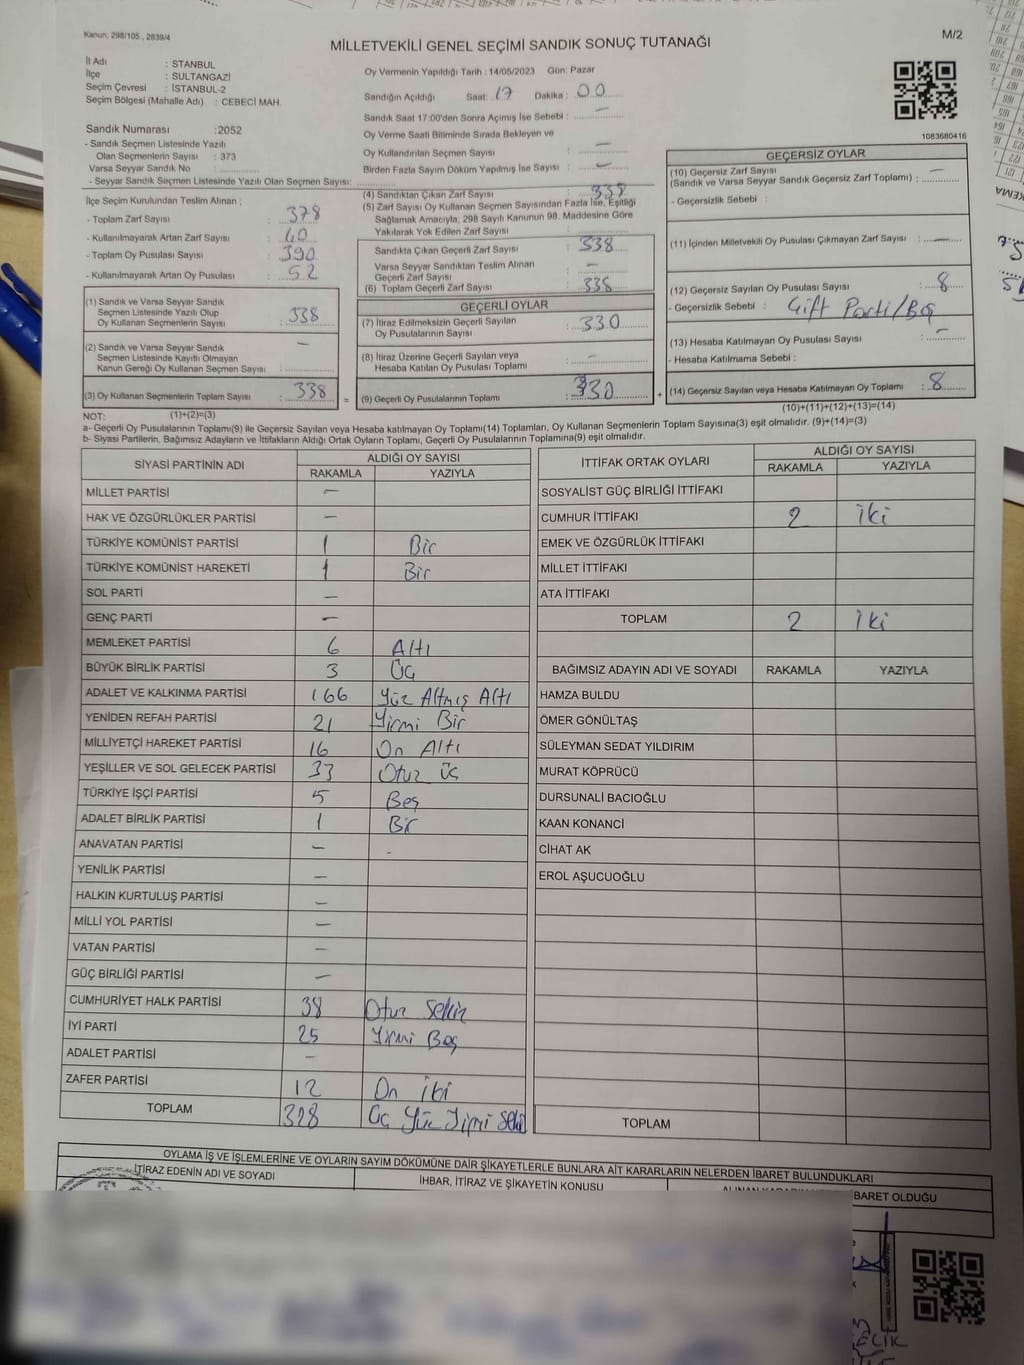 Kanun; 298/105 , 2839/4
M/2
MİLLETVEKİLİ GENEL SEÇİMİ SANDIK SONUÇ TUTANAĞI
İl Adı : STANBUL
İlçe : SULTANGAZİ
Seçim Çevresi : İSTANBUL-2
Seçim Bölgesi (Mahalle Adı) : CEBECİ MAH.
Sandık Numarası :2052
- Sandık Seçmen Listesinde Yazılı
Olan Seçmenlerin Sayısı : 373
Varsa Seyyar Sandık No :
- Seyyar Sandık Seçmen Listesinde Yazılı Olan Seçmen Sayısı:
İlçe Seçim Kurulundan Teslim Alınan ;
- Toplam Zarf Sayısı : 378
- Kullanılmayarak Artan Zarf Sayısı : 40
- Toplam Oy Pusulası Sayısı : 390
- Kullanılmayarak Artan Oy Pusulası : 52
(1) Sandık ve Varsa Seyyar Sandık
Seçmen Listesinde Yazılı Olup
Oy Kullanan Seçmenlerin Sayısı : 338
(2) Sandık ve Varsa Seyyar Sandık
Seçmen Listesinde Kayıtlı Olmayan
Kanun Gereği Oy Kullanan Seçmen Sayısı : —
(3) Oy Kullanan Seçmenlerin Toplam Sayısı : 338 =
Oy Vermenin Yapıldığı Tarih : 14/05/2023 Gün: Pazar
Sandığın Açıldığı Saat: 17 Dakika : 00
Sandık Saat 17:00'den Sonra Açımış İse Sebebi : —
Oy Verme Saati Bitiminde Sırada Bekleyen ve
Oy Kullandırılan Seçmen Sayısı : —
Birden Fazla Sayım Döküm Yapılmış İse Sayısı : —
(4) Sandıktan Çıkan Zarf Sayısı : 338
(5) Zarf Sayısı Oy Kullanan Seçmen Sayısından Fazla İse, Eşitliği
Sağlamak Amacıyla; 298 Sayılı Kanunun 98. Maddesine Göre
Yakılarak Yok Edilen Zarf Sayısı :
Sandıkta Çıkan Geçerli Zarf Sayısı : 338
Varsa Seyyar Sandıktan Teslim Alınan
Geçerli Zarf Sayısı : —
(6) Toplam Geçerli Zarf Sayısı : 338
GEÇERLİ OYLAR
(7) İtiraz Edilmeksizin Geçerli Sayılan
Oy Pusulalarının Sayısı : 330
(8) İtiraz Üzerine Geçerli Sayılan veya
Hesaba Katılan Oy Pusulası Toplamı : —
(9) Geçerli Oy Pusulalarının Toplamı : 330 +
1083680416
GEÇERSİZ OYLAR
(10) Geçersiz Zarf Sayısı —
(Sandık ve Varsa Seyyar Sandık Geçersiz Zarf Toplamı) :
- Geçersizlik Sebebi :
(11) İçinden Milletvekili Oy Pusulası Çıkmayan Zarf Sayısı : —
(12) Geçersiz Sayılan Oy Pusulası Sayısı : 8
- Geçersizlik Sebebi : Çift Parti/Boş
(13) Hesaba Katılmayan Oy Pusulası Sayısı : —
- Hesaba Katılmama Sebebi :
(14) Geçersiz Sayılan veya Hesaba Katılmayan Oy Toplamı : 8
NOT: (1)+(2)=(3)
(10)+(11)+(12)+(13)=(14)
a- Geçerli Oy Pusulalarının Toplamı(9) ile Geçersiz Sayılan veya Hesaba Katılmayan Oy Toplamı(14) Toplamları, Oy Kullanan Seçmenlerin Toplam Sayısına(3) eşit olmalıdır. (9)+(14)=(3)
b- Siyasi Partilerin, Bağımsız Adayların ve İttifakların Aldığı Ortak Oyların Toplamı, Geçerli Oy Pusulalarının Toplamına(9) eşit olmalıdır.
SİYASİ PARTİNİN ADI ALDIĞI OY SAYISI
RAKAMLA YAZIYLA
MİLLET PARTİSİ —
HAK VE ÖZGÜRLÜKLER PARTİSİ —
TÜRKİYE KOMÜNİST PARTİSİ 1 Bir
TÜRKİYE KOMÜNİST HAREKETİ 1 Bir
SOL PARTİ —
GENÇ PARTİ —
MEMLEKET PARTİSİ 6 Altı
BÜYÜK BİRLİK PARTİSİ 3 Üç
ADALET VE KALKINMA PARTİSİ 166 Yüz Altmış Altı
YENİDEN REFAH PARTİSİ 21 Yirmi Bir
MİLLİYETÇİ HAREKET PARTİSİ 16 On Altı
YEŞİLLER VE SOL GELECEK PARTİSİ 33 Otuz Üç
TÜRKİYE İŞÇİ PARTİSİ 5 Beş
ADALET BİRLİK PARTİSİ 1 Bir
ANAVATAN PARTİSİ — -
YENİLİK PARTİSİ —
HALKIN KURTULUŞ PARTİSİ —
MİLLİ YOL PARTİSİ —
VATAN PARTİSİ —
GÜÇ BİRLİĞİ PARTİSİ —
CUMHURİYET HALK PARTİSİ 38 Otuz Sekiz
İYİ PARTİ 25 Yirmi Beş
ADALET PARTİSİ —
ZAFER PARTİSİ 12 On İki
TOPLAM 328 Üç Yüz Yirmi Seki
İTTİFAK ORTAK OYLARI ALDIĞI OY SAYISI
RAKAMLA YAZIYLA
SOSYALİST GÜÇ BİRLİĞİ İTTİFAKI
CUMHUR İTTİFAKI 2 İki
EMEK VE ÖZGÜRLÜK İTTİFAKI
MİLLET İTTİFAKI
ATA İTTİFAKI
TOPLAM 2 İki
BAĞIMSIZ ADAYIN ADI VE SOYADI RAKAMLA YAZIYLA
HAMZA BULDU
ÖMER GÖNÜLTAŞ
SÜLEYMAN SEDAT YILDIRIM
MURAT KÖPRÜCÜ
DURSUNALİ BACIOĞLU
KAAN KONANCİ
CİHAT AK
EROL AŞUCUOĞLU
TOPLAM
OYLAMA İŞ VE İŞLEMLERİNE VE OYLARIN SAYIM DÖKÜMÜNE DAİR ŞİKAYETLERLE BUNLARA AİT KARARLARIN NELERDEN İBARET BULUNDUKLARI
İTİRAZ EDENİN ADI VE SOYADI İHBAR, İTİRAZ VE ŞİKAYETİN KONUSU BARET OLDUĞU